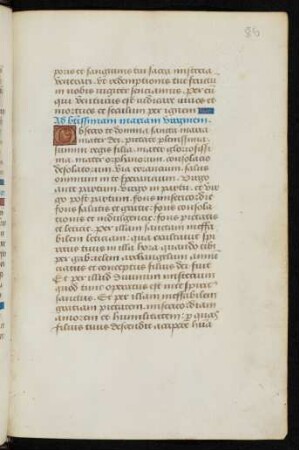 86
poris et sanguinis tui sacra misteria
venerari. ut redemptionis tue fructum
in nobis iugiter sentiamus. Per eu
qui venturus est iudicare vivos et
mortuos et seculum per ignem
Ad btissimam mariam virginem.
Obsecro te domina sancta maria
mater dei pietate plenissima
summi regis filia. mater gloriosissi
ma. mater orphanorum. consolatio
desolatorum. via errancium. salus
omnium in te sperantium. virgo
ante partum. virgo in partu. et vir
go post partum. fons misericordie
fons salutis et gratie. fons consola
tionis et indulgencie. fons pietatis
et leticie. per illam sanctam ineffa
bilem leticiam. qua exultavit spi
ritus tuus in illa hora quando tibi
per gabrielem archangelum annu
ciatus et conceptus filius dei fuit
Et per illud divinum misterium
quod tunc operatus est in te spiritus
sanctus. Et per illam ineffabilem
gratiam pietatem. misericordiam
amorem et humilitatem: per quas
filius tuus descendit accipere huma